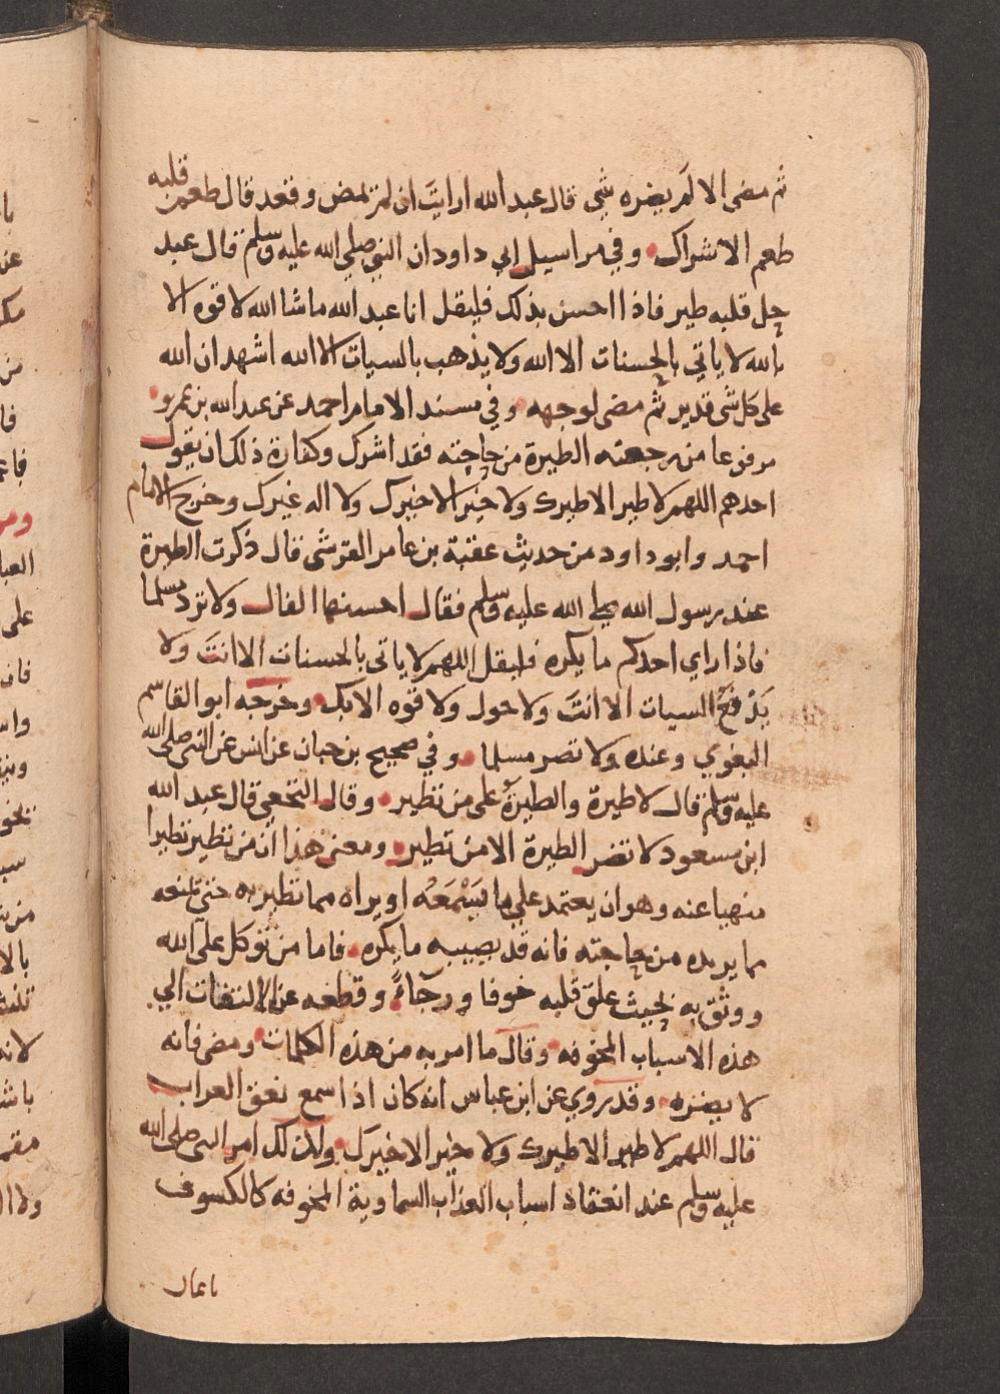 ثم مضي الا لم يضره شي قال عبد الله ارايت ان لم تمض وقعد قال طعم قلبه
طعم الاشراك وفي مراسيل ابي داود ان النبي صلي الله عليه وسلم قال عبد
حل قلبه طير فاذا احسن بذلك فليقل انا عبد الله ماشا الله لا قوه الا
بالله لا ياتي بالحسنات الا الله ولا يذهب بالسيات الا الله اشهد ان الله
على كل شى قدير ثم مضى لوجهه وفي مسند الامام احمد عن عبد الله بن عمرو
مرفوعا من رجعته الطيرة من حاجته فقد اشرك وكفارة ذلك ان يقول
احدهم اللهم لا طير الا طيرك ولا خير الا خيرك ولا اله غيرك وخرج الامام
احمد وابو داود من حديث عقبة بن عامر القرشى قال ذكرت الطيرة
عند رسول الله صلي الله عليه وسلم فقال احسنها الفال ولا ترد مسلما
فاذا راي احدكم ما يكره فليقل اللهم لا ياتى بالحسنات الا انتَ ولا
يَدْفَعُ السيات الا انتَ ولا حول ولا قوه الا بك وخرجه ابو القاسم
البغوي وعنده ولا تضر مسلما وفي صحيح بن حبان عن انس عن النبى صلى الله
عليه وسلم قال لا طيرة والطيرةُ على من تطير وقال النخعي قال عبد الله
ابن مسعود لا تضر الطيرة الا من تطير ومعنى هذا ان من تطير تطيرا
منهيا عنه وهو ان يعتمد علي ما يَسْمَعُه او يراه مما تطير به حتى تمنعه
مما يريده من حاجته فانه قد يصيبه ما يكره فاما من توكل على الله
ووثق به بحيث علق قلبه خوفا ورجاءً وقطعه عن الالتفات الي
هذه الاسباب المخوفه وقال ما امر به من هذه الكلمات ومضى فانه
لا يضره وقد روي عن ابن عباس انه كان اذا سمع نعق الغراب
قال اللهم لا طير الا طيرك ولا خير الا خيرك ولذلك امر النبى صلى الله
عليه وسلم عند انعقاد اسباب العذاب السماوية المخوفه كالكسوف
باعمال